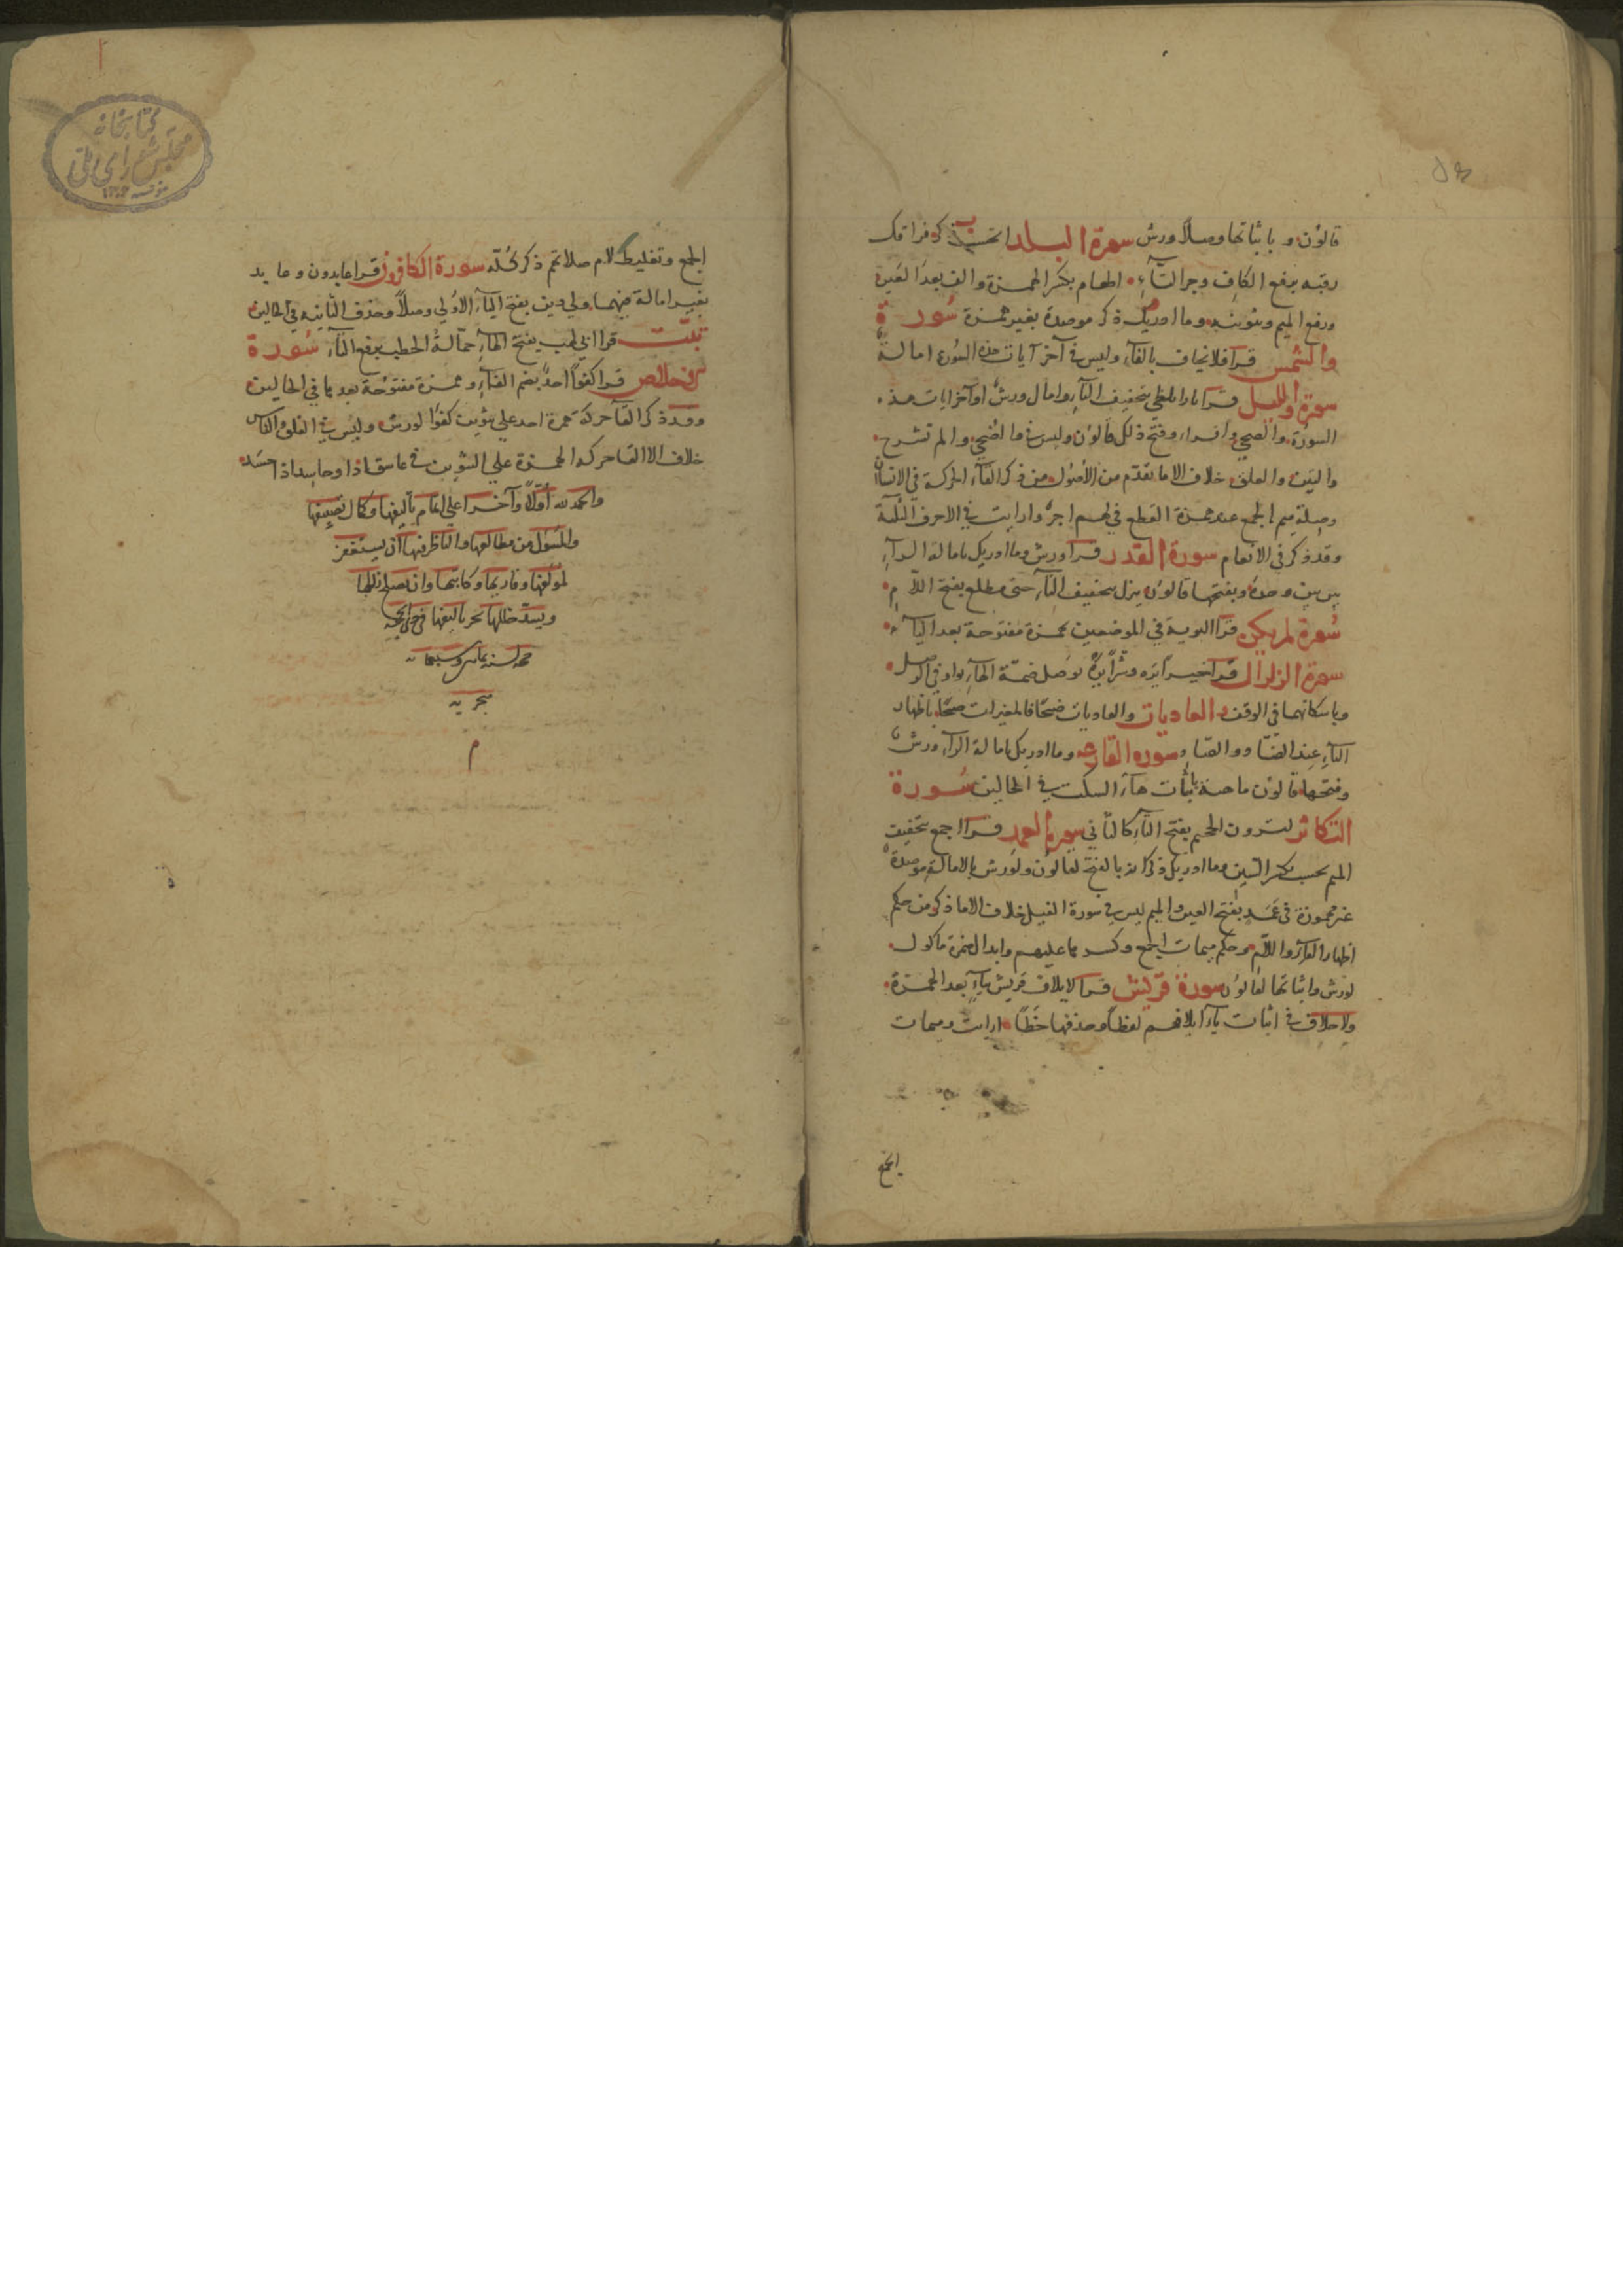 قالون وباثباتها وصلا ورش سورة البلد ايحسب ذكر قرا فك
رقبه برفع الكاف وجر التآء اطعام بكسر الهمزة والف بعد العين
ورفع الميم وتنوينه وما ادريك ذكر موصدة بغير همزة سورة
والشمس قرا فلا يخاف بالفآء وليس في آخر آيات هذه السورة امالة
سورة والليل قرا نارا تلظى بتخفيف التآء وامال ورش اواخر ايات هذه
السورة والضحى واقرا وفتح ذلك قالون وليس في والضحى والم نشرح
والتين والعلق خلاف الا ما تقدم من الأصول من ذكر القآء الحركة في الانسان
وصلة ميم الجمع عند همزة القطع في لهم اجر وارايت في الاحرف الثلثة
وقد ذكر في الانعام سورة القدر قرا ورش وما ادريك بامالة الرآء
بين بين وحده وبفتحها قالون تنزل بتخفيف التآء حتى مطلع بفتح اللام
سورة لم يكن قرا البريه في الموضعين بهمزة مفتوحة بعد اليآء
سورة الزلزال قرا خيرا يره وشرا يره بوصل ضمة الهآء بواو في الوصل
وباسكانهما في الوقف والعاديات والعاديات ضبحا فالمغيرات صبحا باظهار
التآء عند الضاد والصاد سورة القارعه وما ادريك بامالة الرآء ورش
وفتحها قالون ماهيه باثبات هآء السكت في الحالين سورة
التكاثر لترون الجحيم بفتح التآء كالثاني سورة الهمزه قرا جمع بتخفيف
الميم يحسب بكسر السين وما ادريك ذكر انه بالفتح لقالون ولورش بالامالة موصدة
غير مهموزة في عمد بفتح العين والميم ليس في سورة الفيل خلاف الا ما ذكر من حكم
اظهار الفآء واللام وحكم ميمات الجمع وكسر ها عليهم وابدال همزة ماكول
لورش واثباتها لقالون سورة قريش قرا لايلاف قريش بيآء بعد الهمزة
ولا خلاف في اثبات يآء ايلافهم لفظا وحذفها خطا ارايت وميمات
الجمع
الجمع وتغليظ لام صلاتهم ذكر كله سورة الكافرون قرا عابدون وعابد
بغير امالة فيهما ولي دين بفتح اليآء الاولى وصلا وحذف الثانيه في الحالين
تبت قرا ابي لهب بفتح الهآء حمالة الحطب برفع التآء سورة
الاخلاص قرا كفوا احد بضم الفآء وهمزة مفتوحة بعدها في الحالين
وقد ذكر القآء حركة همزة احد على تنوين كفوا لورش وليس في الفلق والناس
خلاف الا القآء حركة الهمزة على التنوين في غاسق اذا وحاسد اذا حسد
والحمد لله اولا وآخرا على اتمام تاليفها وكمال تصنيفها
والمسؤل من مطالعها والناظر فيها ان يستغفر
لمؤلفها وقاريها وكاتبها وان يصلح زللها
ويسد خللها تحرر تاليفها في ذي الحجه
حجة لسنة ثمان وسبعمايه
هجريه
م
كتابخانه
مجلس شورای ملی